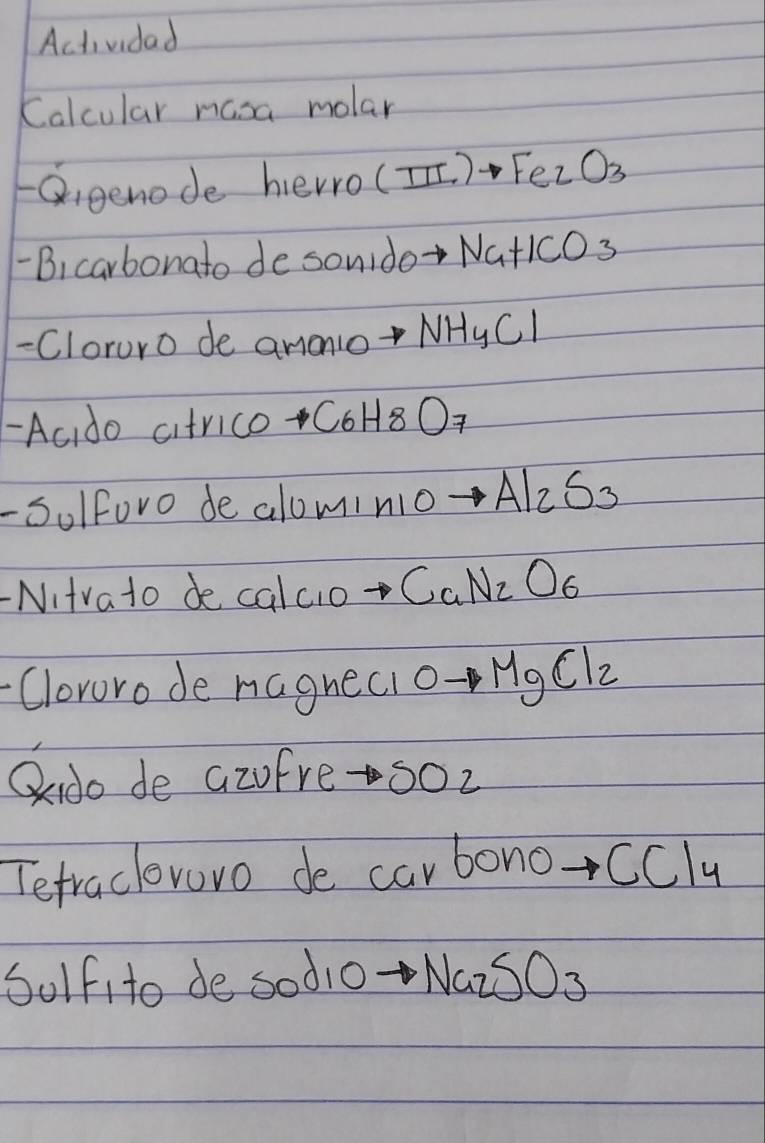 Actividad
Calcular masa molar
-Óxigeno de hierro (III) → Fe2O3
-Bicarbonato de sonido → NaHCO3
-Cloruro de amonio → NH4Cl
-Acido citrico → C6H8O7
-Sulfuro de aluminio → Al2S3
-Nitrato de calcio → CaN2O6
-Cloruro de magnecio → MgCl2
Óxido de azufre → SO2
Tetracloruro de carbono → CCl4
Sulfito de sodio → Na2SO3